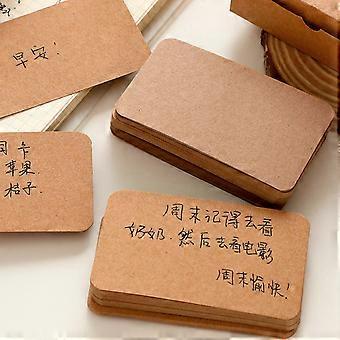 早安!
卡
苹果
桔子.
周末记得去看
奶奶.然后去看电影
周末愉快!